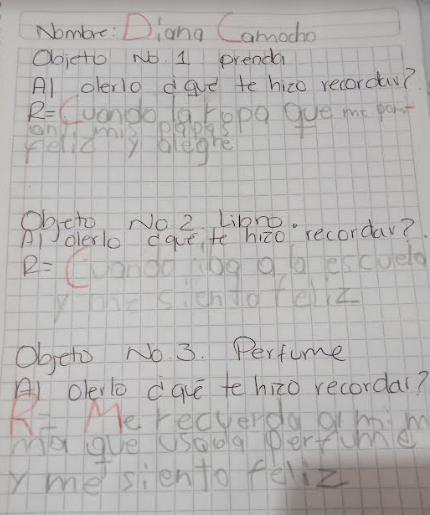 Nombre: Diana Camacho
Objeto No. 1 prenda
Al olerlo d qué te hizo recordar?
R= Cuando la ropa que me pon
mis papas
feliz y alegre
Objeto No. 2 Libro.
Al olerlo d qué te hizo recordar?
R= Cuando iba a la escuela
y me siento feliz
Objeto No. 3. Perfume
Al olerlo d qué te hizo recordar?
R= Me recuerda a mi m
ma que usaba perfume
y me siento feliz